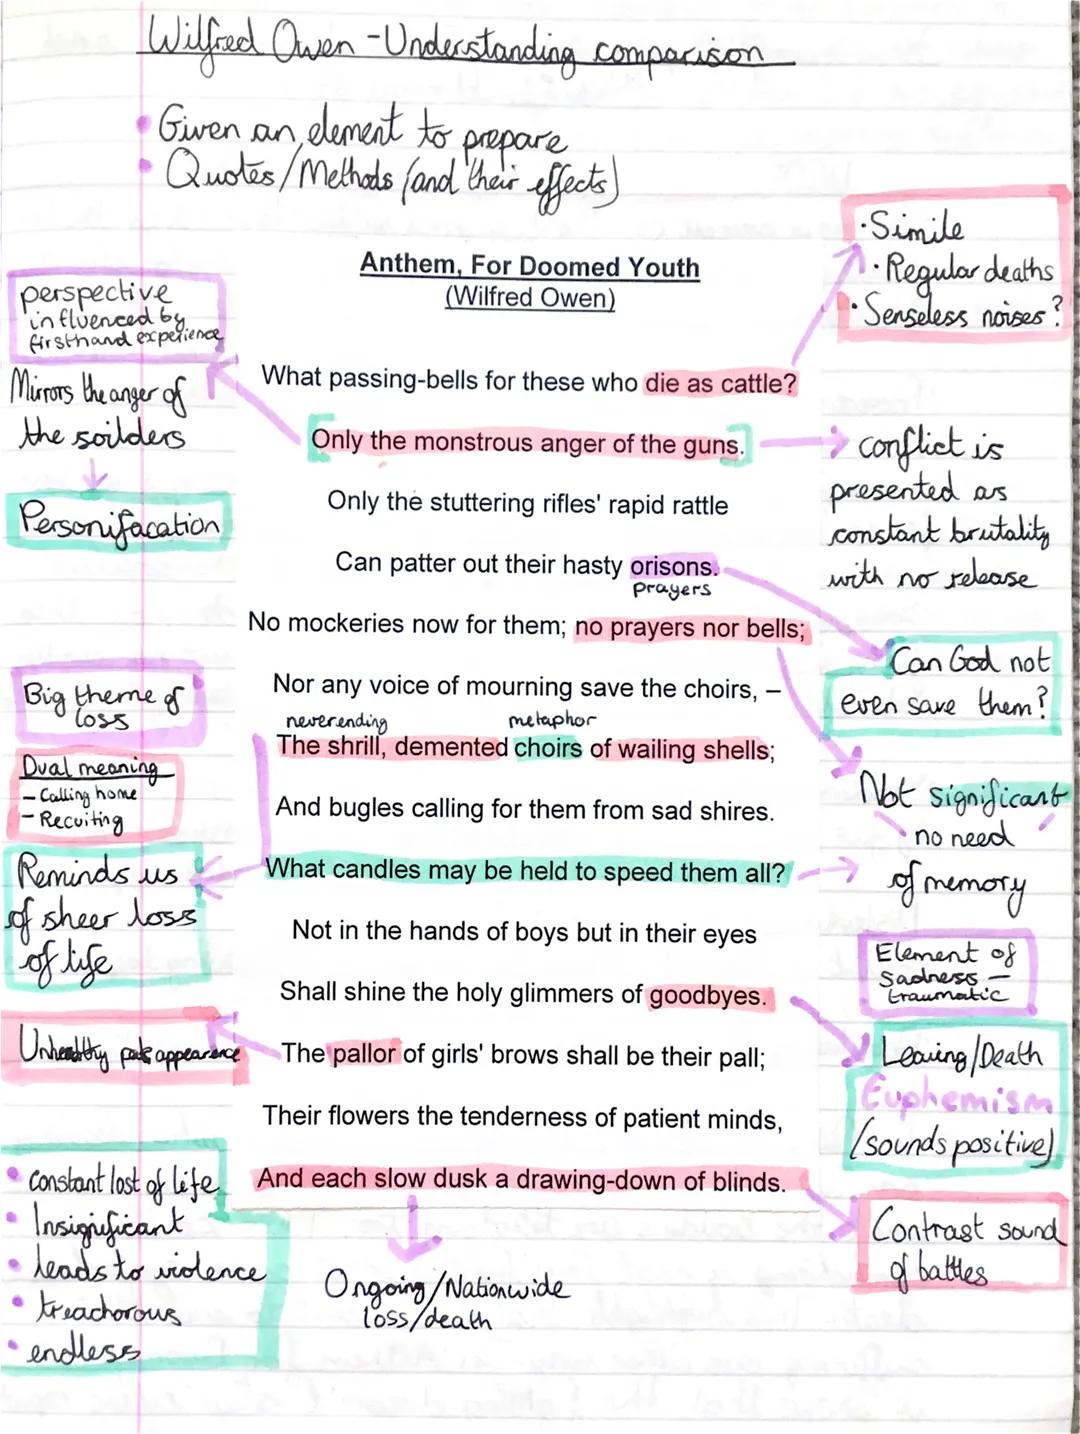 Wilfred Owen - Understanding comparison
• Given an element to prepare
• Quotes/Methods (and their effects)
Anthem, For Doomed Youth
(Wilfred Owen)
· Simile
· Regular deaths
· Senseless noises?
perspective
influenced by
firsthand experience
Mirrors the anger of
the soilders
Personifacation
What passing-bells for these who die as cattle?
[Only the monstrous anger of the guns.]
conflict is
presented as
constant brutality
with no release
Only the stuttering rifles' rapid rattle
Can patter out their hasty orisons.
prayers
No mockeries now for them; no prayers nor bells;
Can God not
even save them?
Nor any voice of mourning save the choirs, –
Big theme of
loss
neverending metaphor
The shrill, demented choirs of wailing shells;
Dual meaning
- Calling home
- Recuiting
Not significant
no need
of memory
And bugles calling for them from sad shires.
Reminds us
of sheer loss
of life
What candles may be held to speed them all?
Not in the hands of boys but in their eyes
Element of
sadness -
traumatic
Shall shine the holy glimmers of goodbyes.
Unhealthy pale appearance
Leaving/Death
Euphemism
(sounds positive)
The pallor of girls' brows shall be their pall;
Their flowers the tenderness of patient minds,
And each slow dusk a drawing-down of blinds.
• constant lost of life
• Insignificant
• leads to violence
• treachorous
• endless
Ongoing/Nationwide
loss/death
Contrast sound
of battles